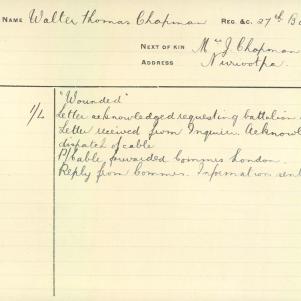 NAME Walter Thomas Chapman REG. &C. 27th Ba
NEXT OF KIN Mrs J Chapman
ADDRESS Nuriootpa.
"Wounded"
1/L Letter acknowledged requesting battalion
Letter received from Inquirer. Acknowl
dispatch of cable
P/cable forwarded Commrs London.
Reply from Commrs. Information sent